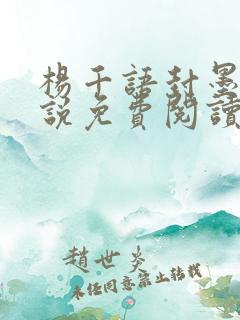 楊千語封墨
說免費閱讀
趙世炎
未經同意禁止轉載